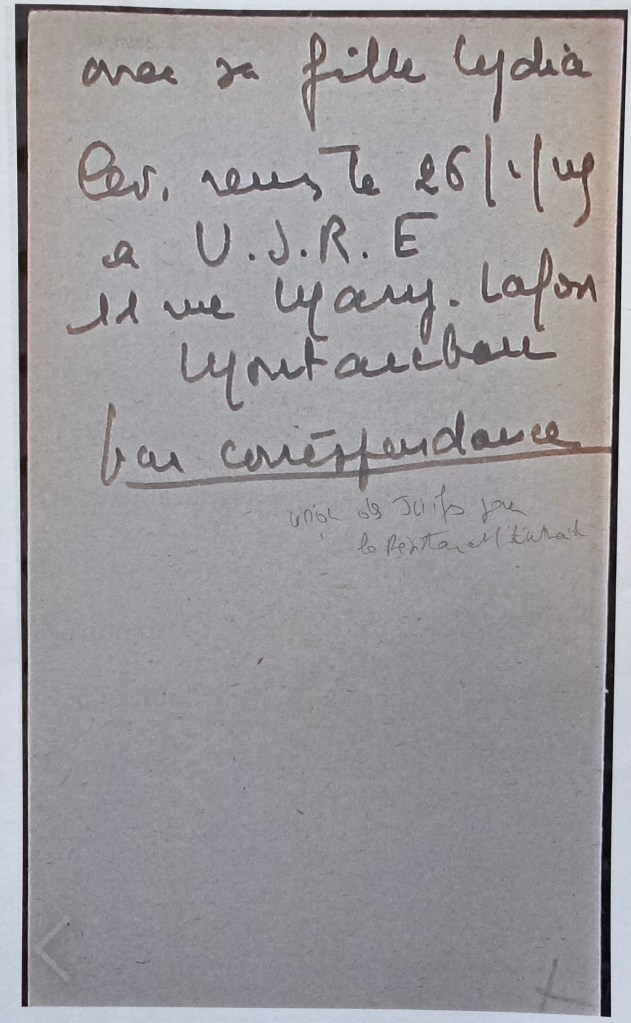 avec sa fille Lydia
Cer. remis le 26/1/49
a U.J.R.E
11 rue Mary. Lafon
Montauban
par correspondance
union des Juifs pour
la Résistance et l'Entraide